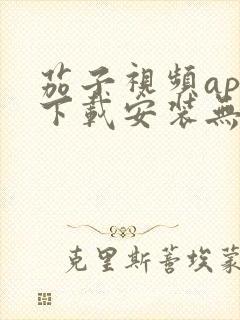 茄子視頻ap
下載安裝無
克里斯蒂埃蒙